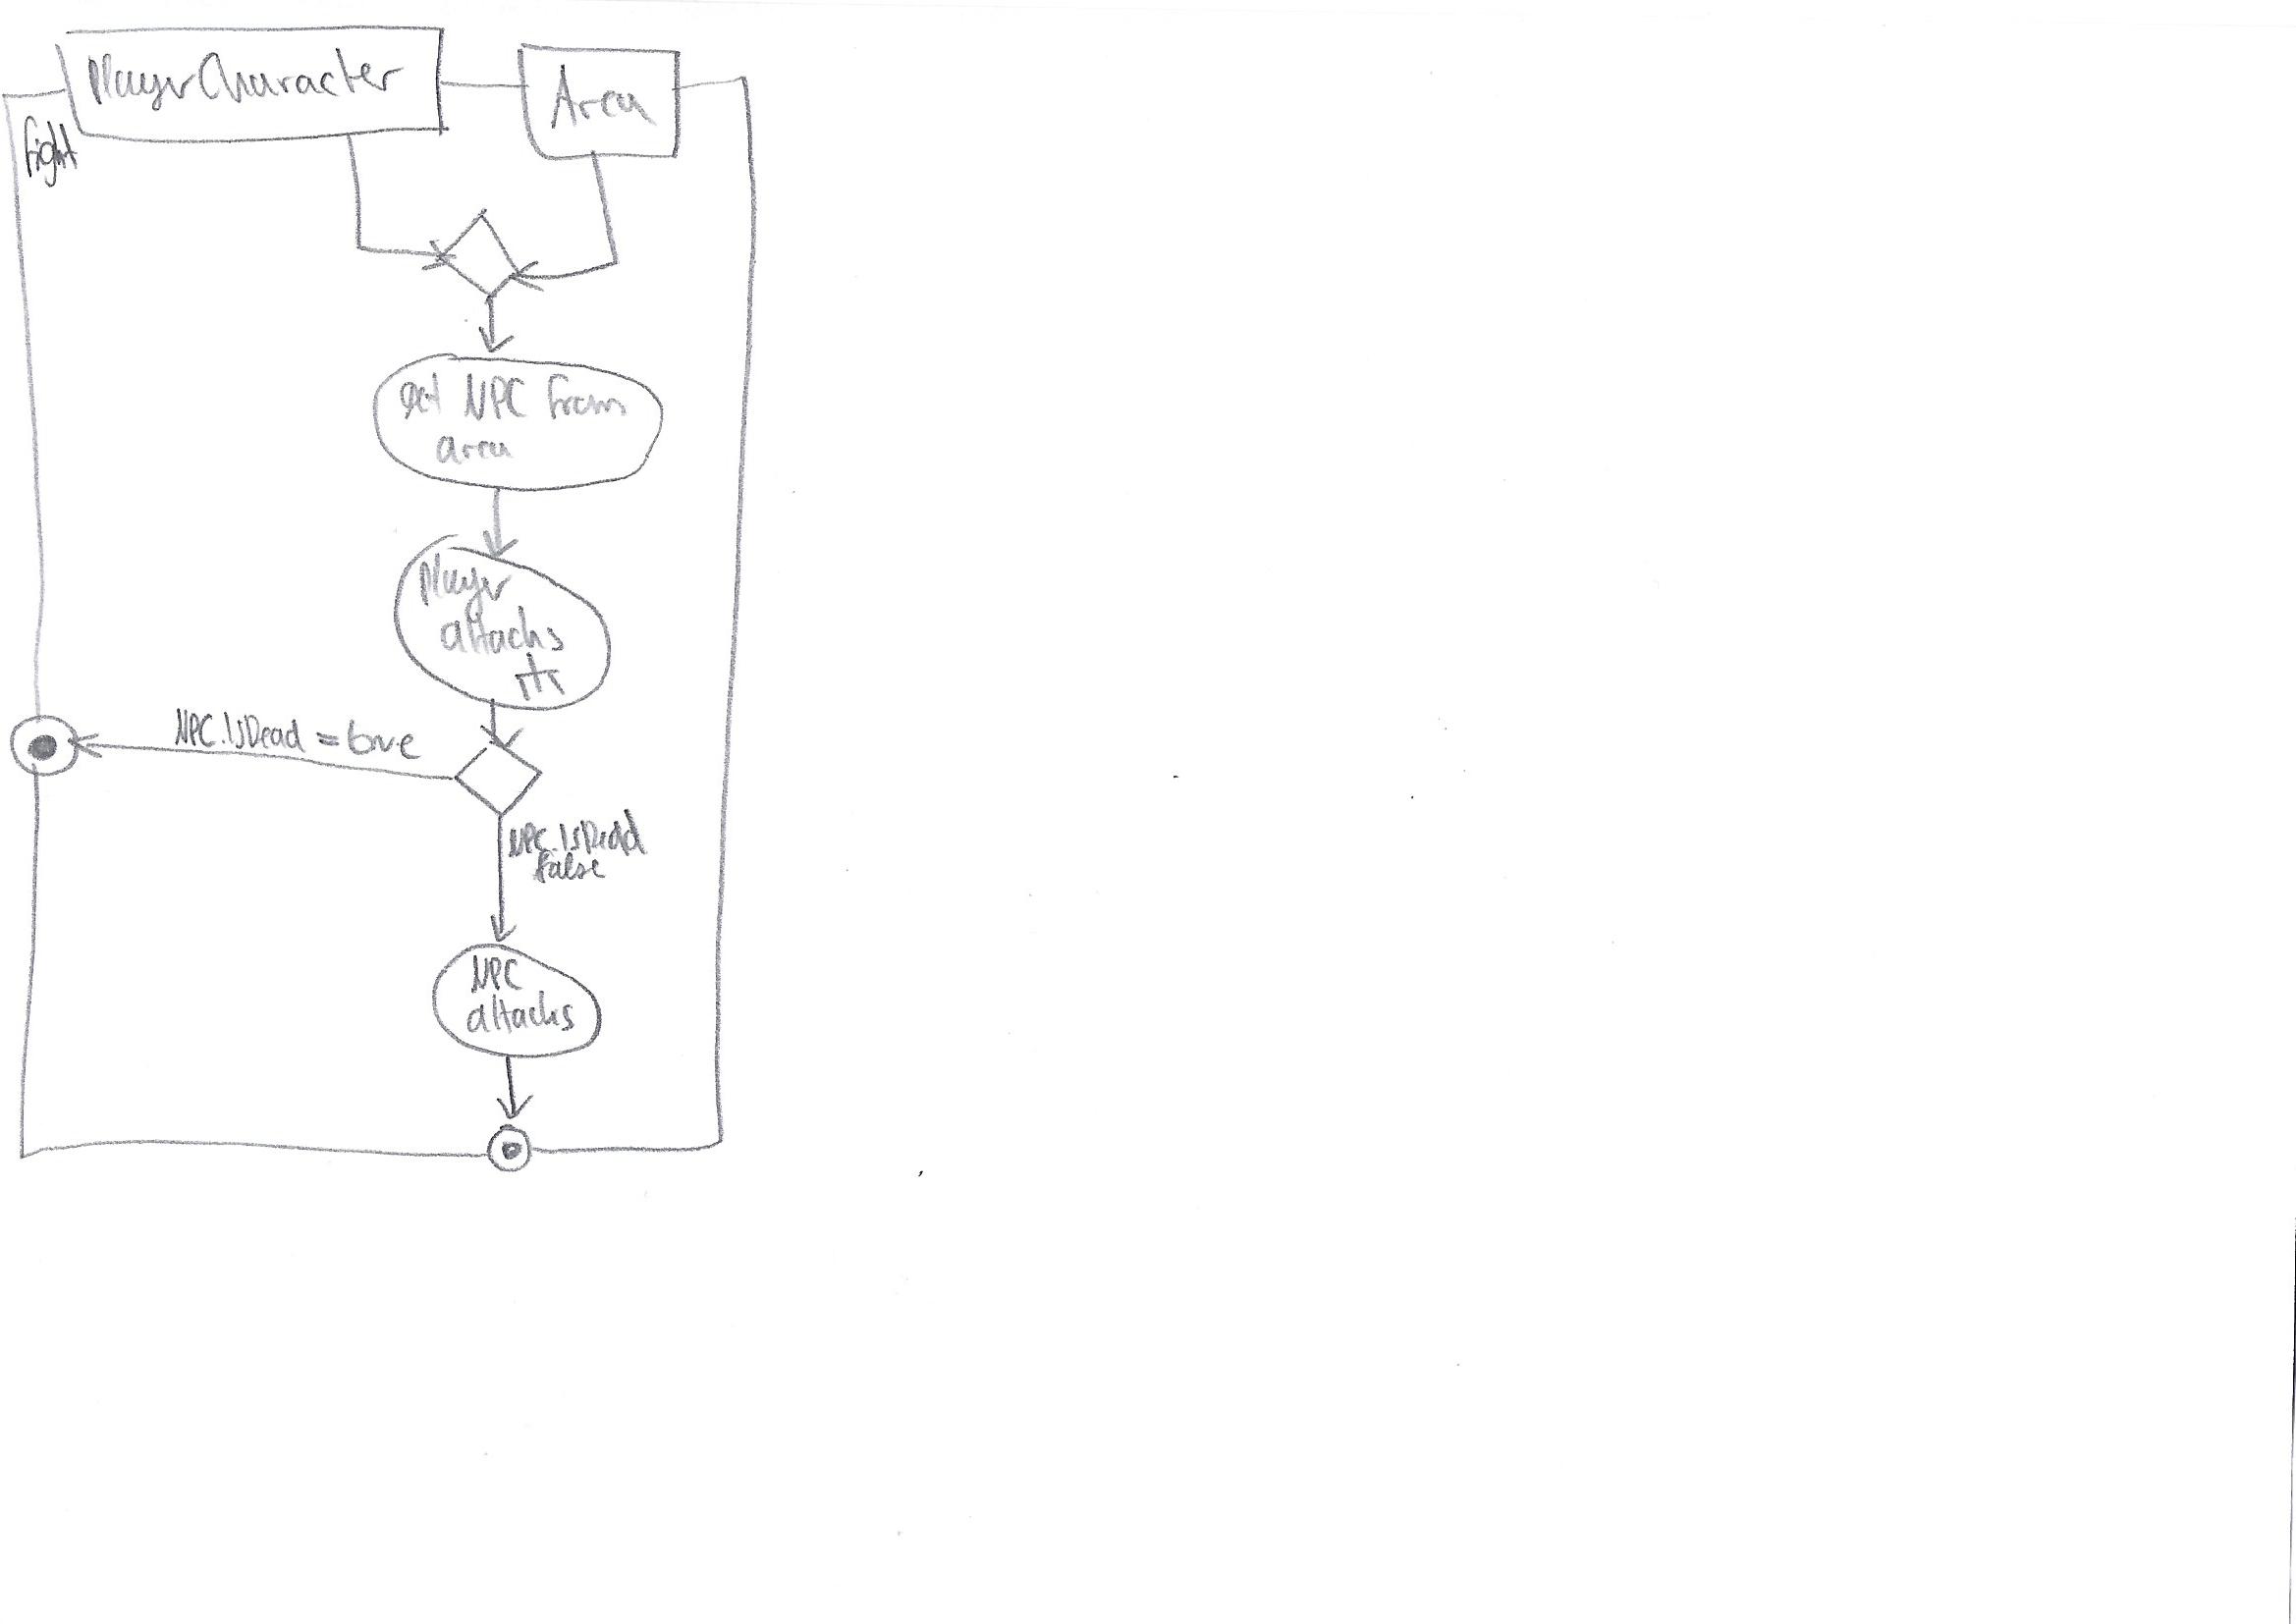 PlayerCharacter
Area
fight
get NPC from
area
Player
attacks
NPC.IsDead = true
NPC.IsDead
false
NPC
attacks